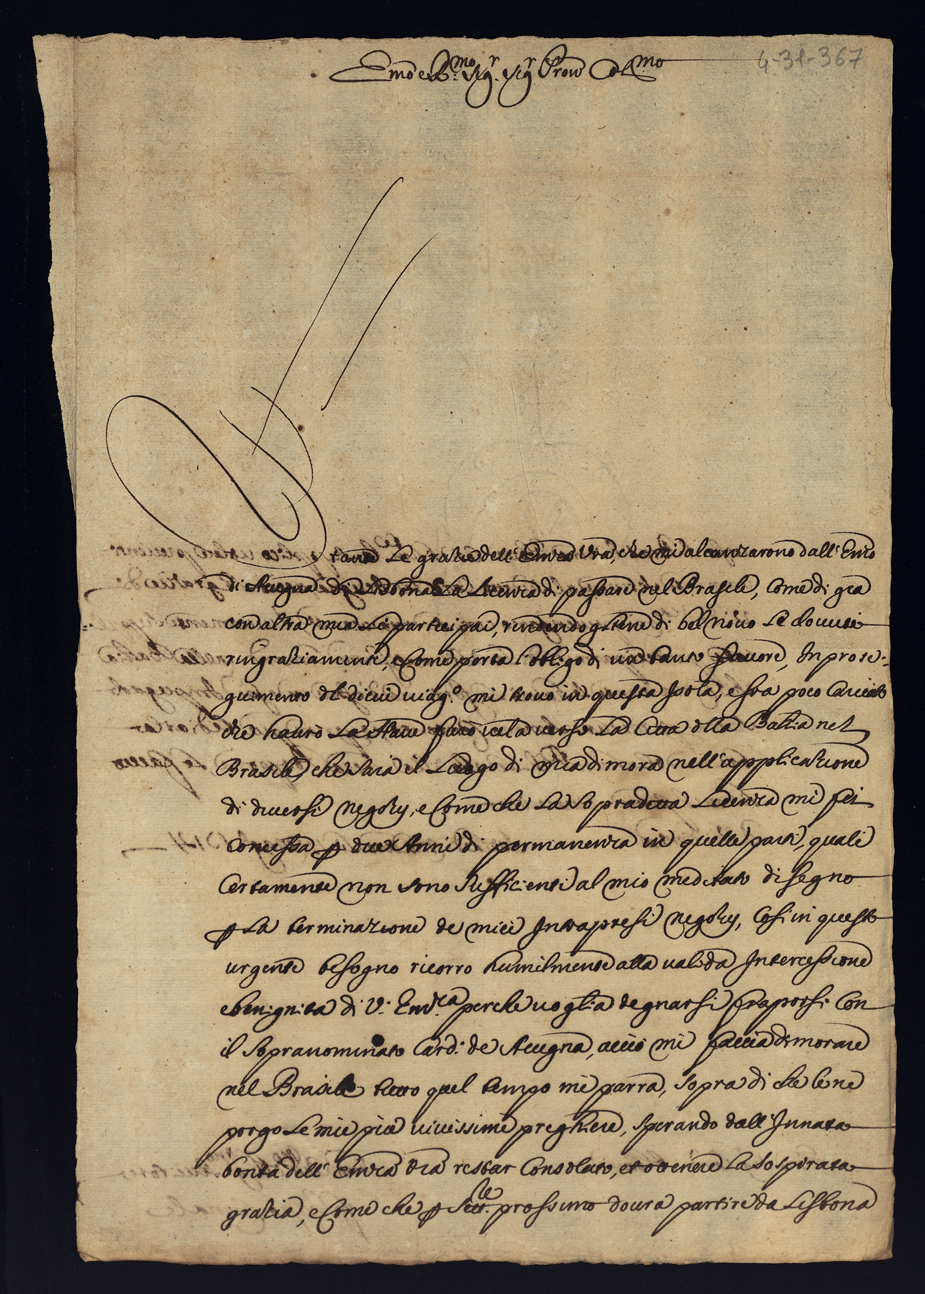 4-31-367
Em.o e R.mo Sig.r Sig.r Pron Col.mo
tante Le grazie dell' Emza Vra, che mi alcanzarono dall' Emo
di Acugna da Lisbona La Licenza di passare nel Brasile, come di già
con altra mia Le participai, rendendogliene di bel novo Le dovute
ringratiamenti, e come porta l'obligo di un tanto favore, In prose-
guimento del dicui viag.o mi trovo in questa Isola, e fra poco
che haurò La Nave farò vela verso La Città della Bahia nel
Brasile, che sara il Luogo di mia dimora nell' applicatione
di diversi negozy, e come che La sopradetta Licenza mi fù
concessa p due Anni di permanenza in quelle parti, quali
Certamente non sono sufficienti al mio meditato disegno
p La terminazione de miei Intrapresi negozy, Cosi in questo
urgente besogno ricorro humilmente alla valida Intercessione
e benignità di V. Em.za perche voglia degnarsi Con
il sopranominato Card. de Acugna, acciò mi faccia dimorare
nel Brasile tutto quel tempo mi parrà, sopra di che Le ne
porgo Le mie più vivissime preghiere, sperando dall' Innata
bontà dell' Emza Vra restar Consolato, et ottenere La sospirata
grazia, e Come che p Sett.re prossimo dovrà partire da Lisbona